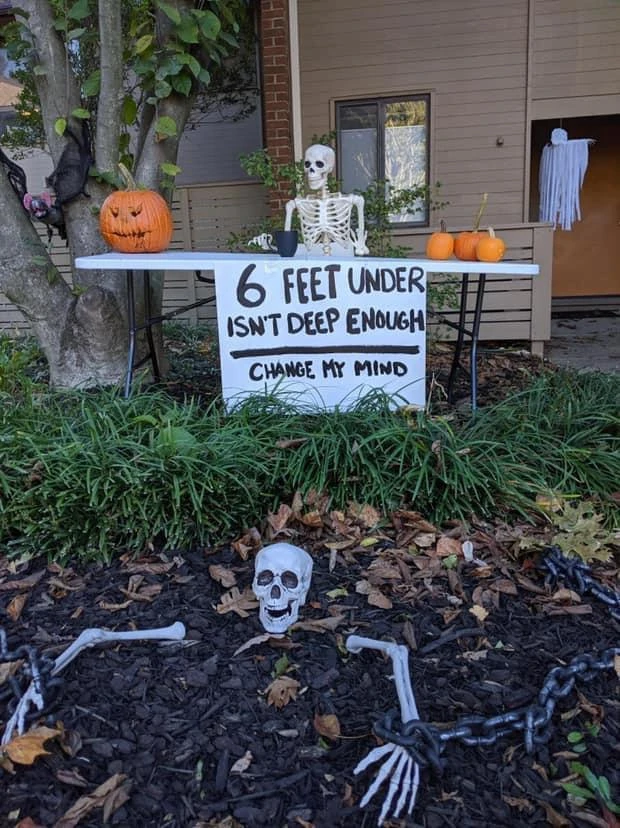 6 FEET UNDER
ISN'T DEEP ENOUGH
CHANGE MY MIND